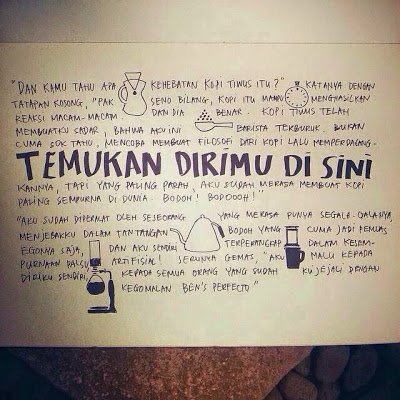 "DAN KAMU TAHU APA KEHEBATAN KOPI TIWUS ITU?" KATANYA DENGAN
TATAPAN KOSONG, "PAK SENO BILANG, KOPI ITU MAMPU MENGHASILKAN
REAKSI MACAM-MACAM DAN DIA BENAR. KOPI TIWUS TELAH
MEMBUATKU SADAR, BAHWA AKU INI BARISTA TERBURUK. BUKAN
CUMA SOK TAHU, MENCOBA MEMBUAT FILOSOFI DARI KOPI LALU MEMPERDAGANG-
TEMUKAN DIRIMU DI SINI
KANNYA, TAPI YANG PALING PARAH, AKU SUDAH MERASA MEMBUAT KOPI
PALING SEMPURNA DI DUNIA. BODOH! BODOOOH!"
"AKU SUDAH DIPERALAT OLEH SESEORANG YANG MERASA PUNYA SEGALA-GALANYA,
MENJEBAKKU DALAM TANTANGAN BODOH YANG CUMA JADI PEMUAS
EGONYA SAJA, DAN AKU SENDIRI TERPERANGKAP DALAM KESEM-
PURNAAN PALSU ARTIFISIAL! SERUNYA GEMAS, "AKU MALU KEPADA
DIRIKU SENDIRI, KEPADA SEMUA ORANG YANG SUDAH KUJEJALI DENGAN
KEGOMALAN BEN'S PERFECTO"